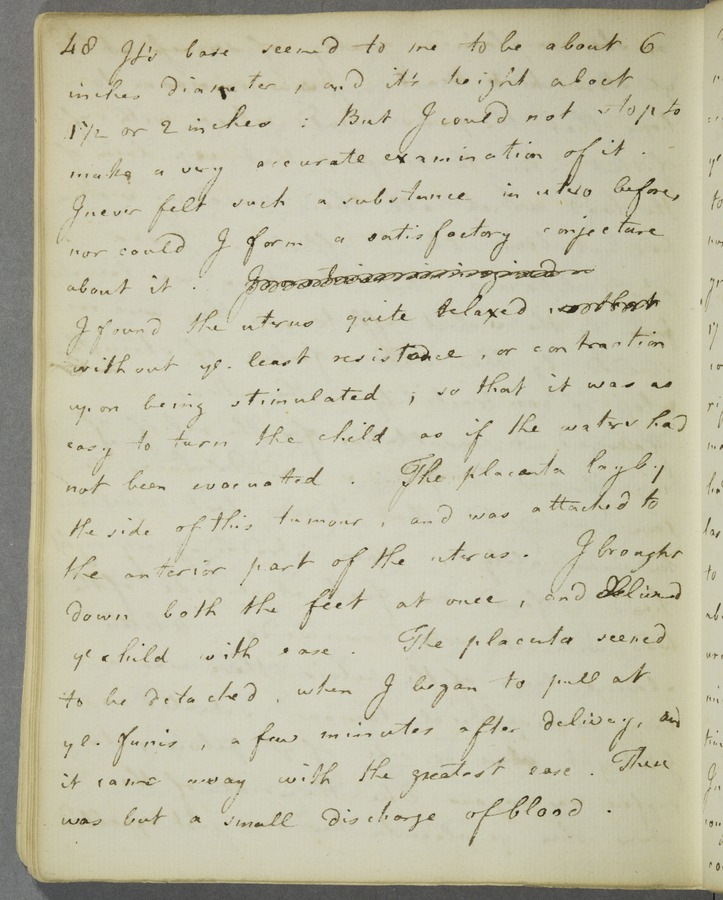 48 It's base seemed to me to be about 6
inches diameter, and it's height about
1 1/2 or 2 inches : But I could not stop to
make a very accurate examination of it .
I never felt such a substance in utero before,
nor could I form a satisfactory conjecture
about it .
I found the uterus quite relaxed
without ye. least resistance, or contraction
upon being stimulated ; so that it was as
easy to turn the child as if the waters had
not been evacuated . The placenta lay by
the side of this tumour, and was attached to
the anterior part of the uterus . I brought
down both the feet at once, and delivered
ye child with ease . The placenta seemed
to be detached, when I began to pull at
ye. funis, a few minutes after delivery, and
it came away with the greatest ease . There
was but a small discharge of blood .